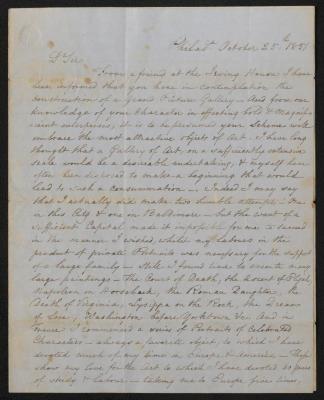 Philad<sup>a</sup> October 25<sup>th</sup> 1851
D<sup>r</sup> Sir,
From a friend at the Irving House I have
been informed that you have in contemplation the
construction of a Grand Picture Gallery — And from our
knowledge of your Character in effecting bold & magnifi
cent enterprises, it is to be presumed your Scheme will
embrace the most attractive objects of Art. I have long
thought that a Gallery of Art on a sufficiently extensive
scale would be a desirable undertaking, & myself have
often been disposed to make a beginning that would
lead to such a consummation — Indeed I may say
that I actually did make two humble attempts — One
in this City & one in Baltimore — but the want of a
sufficient Capital made it impossible for me to succeed
in the manner I wished, whilst my labours in the
product of private Portraits was necessary for the support
of a large family — Still I found time to execute many
large paintings — The Court of Death, the Ascent of Elijah
Napoleon on Horseback, the Roman Daughter, the
Death of Virginia, Lysippa on the Rock, the Dream
of Love, Washington before Yorktown, &c. And in
means I commenced a series of Portraits of Celebrated
Characters — always a favorite object, to which I have
devoted much of my time in Europe & America — These
show my love for the Art to which I have devoted 60 years
of study & labour — taking me to Europe five times,